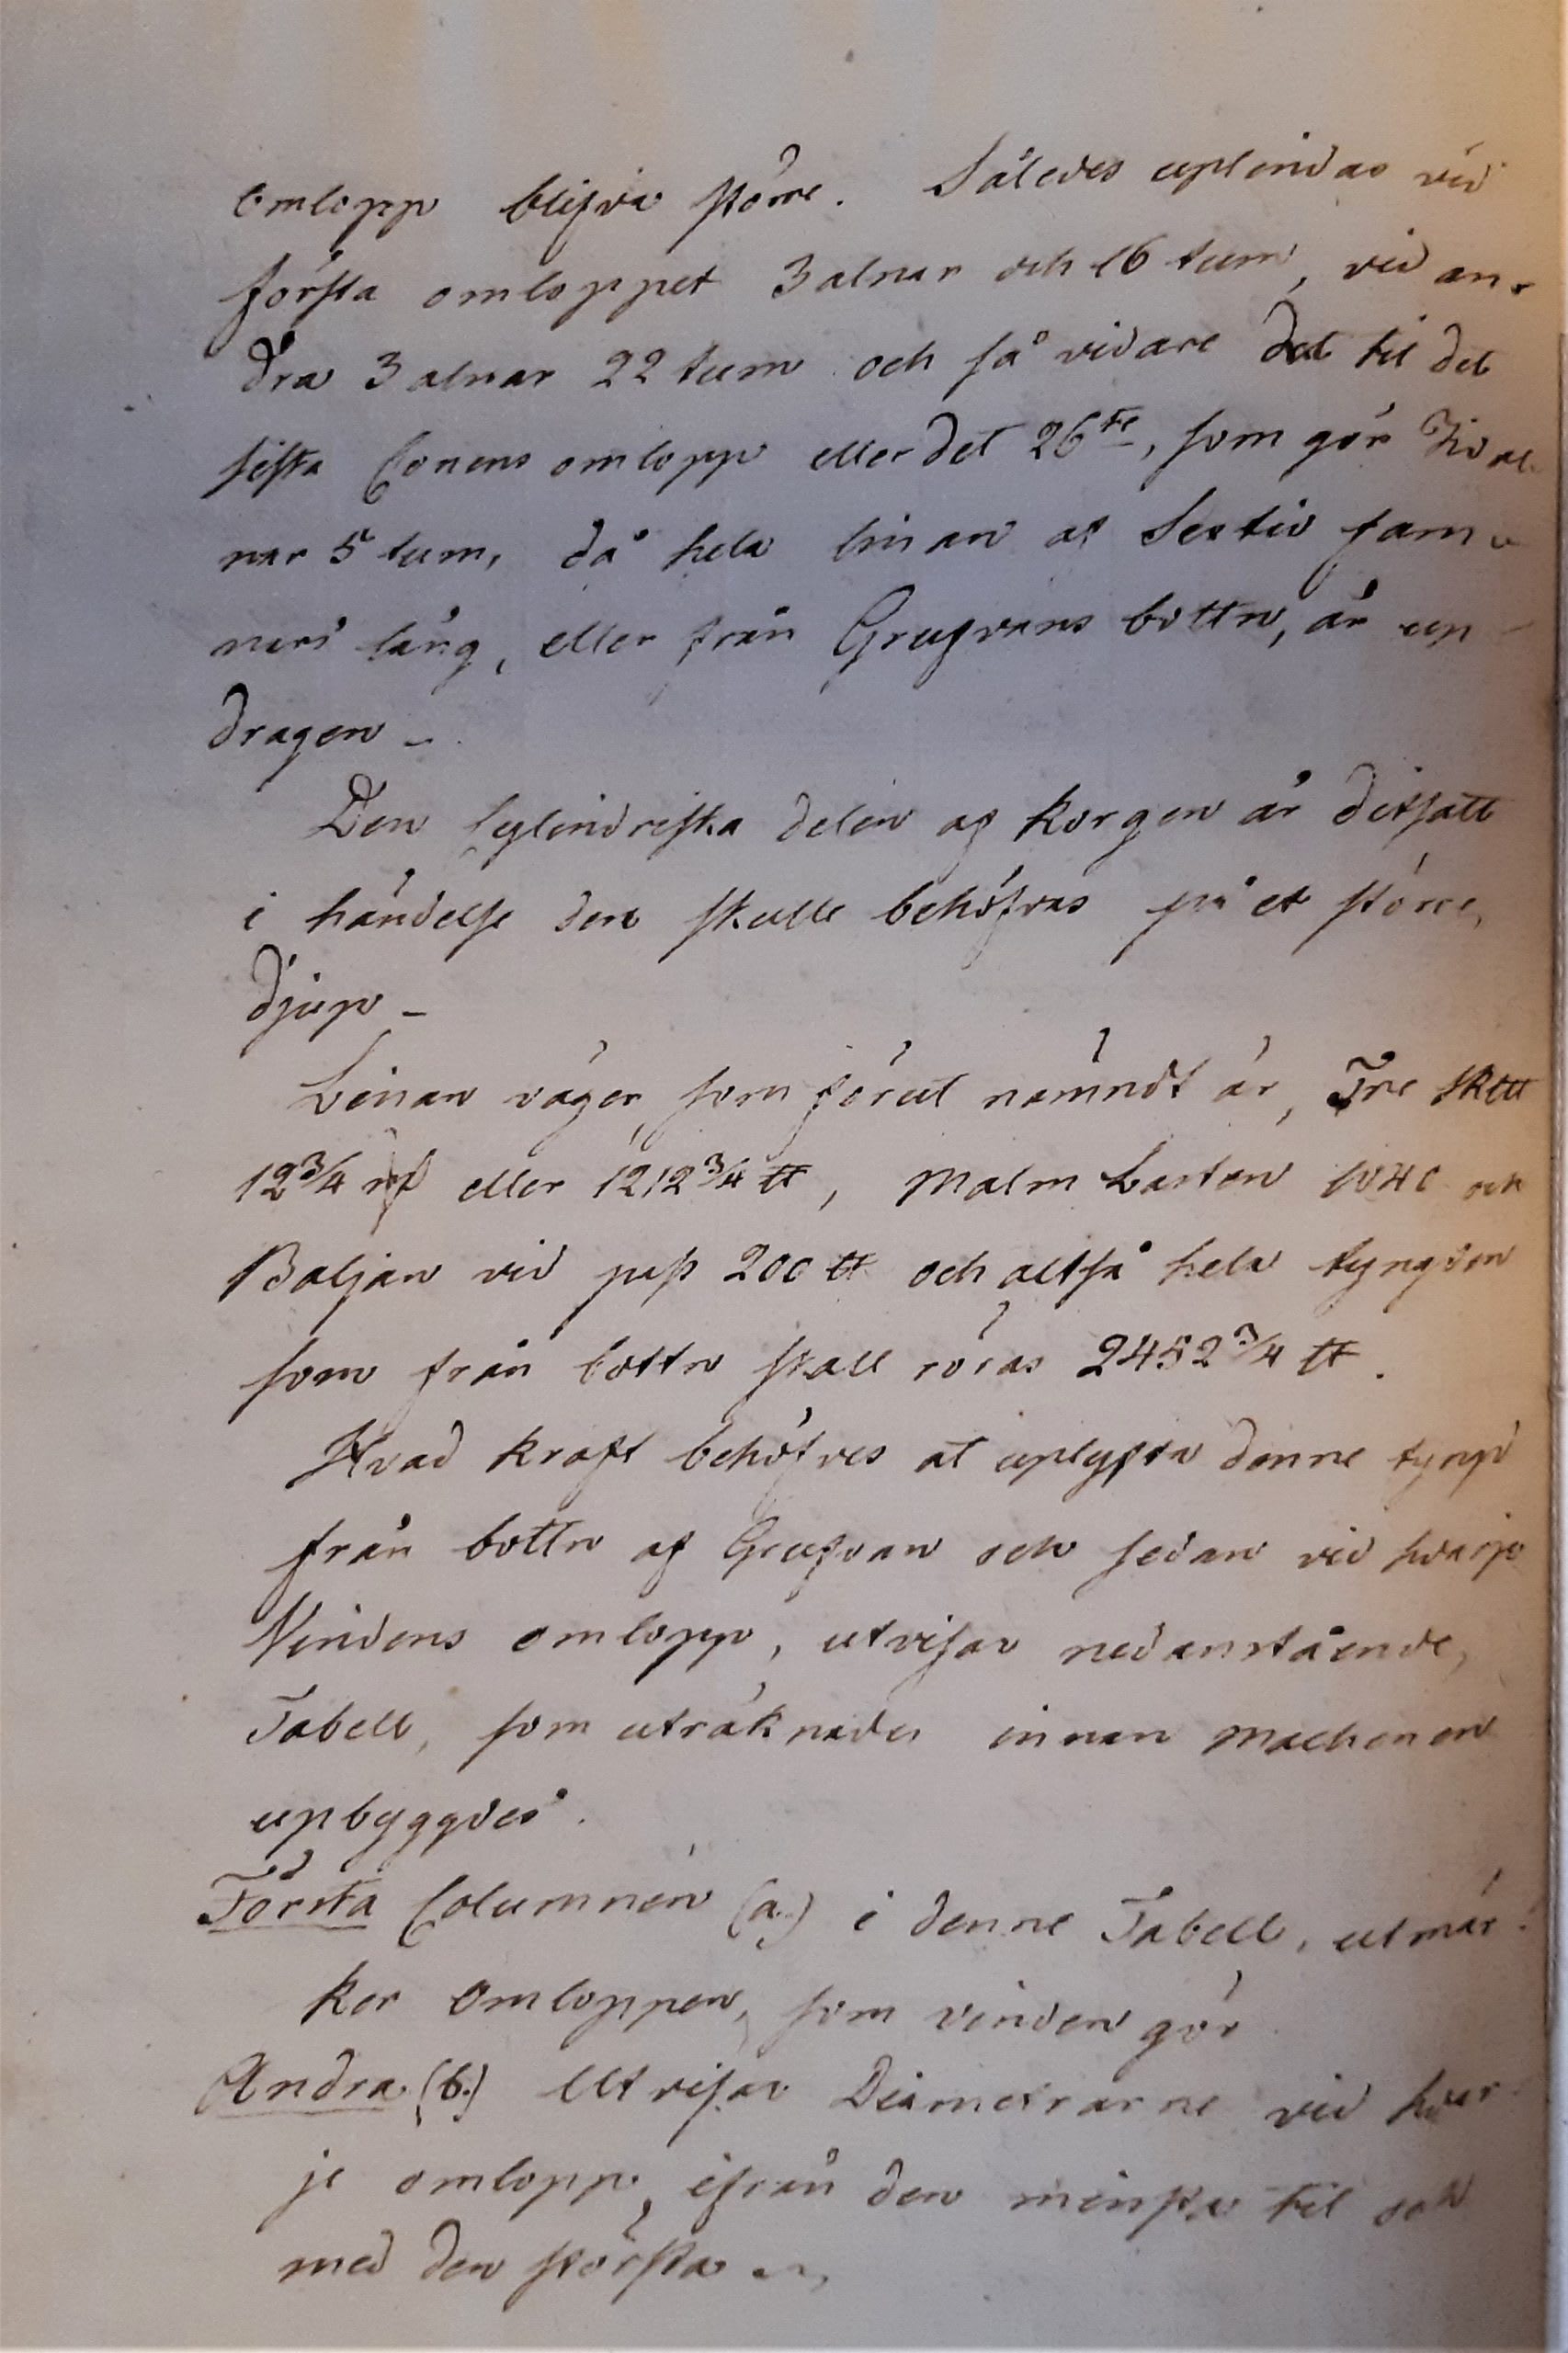 omlopp blifva större. Således uplindas vid
första omloppet 3 alnar och 16 tum, vid an-
dra 3 alnar 22 tum och så vidare dat til det
sista Conens omlopp eller det 26te, som gör Tio al-
nar 5 tum, då hela linan af Sextio fam-
nars läng, eller från Grufvans bottn, är up-
dragen –
Den Cylindriska delen af korgen är ditsatt
i händelse den skulle behöfvas på et större
djup –
Linan väger, som förut nämndt är, Tre Sk℔
12 3/4 eller 1212 3/4 ℔, Malm Lasten 1040 och
Baljan vid pass 200 ℔ och altså hela tyngden
som från bottn skall röras 2452 3/4 ℔.
Hvad kraft behöfves at uplyfta denne tyngd
från bottn af Grufvan och sedan vid hvarje
Vindens omlopp, utvisar nedanstående
Tabell, som uträknades innan Machinen
upbyggdes.
Första Columnen (a.) i denne Tabell, utmär-
ker Omloppen, som vinden gör
Andra (b.) Utvisar Diametrarne vid hvar-
je omlopp, ifrån den minsta til och
med den största